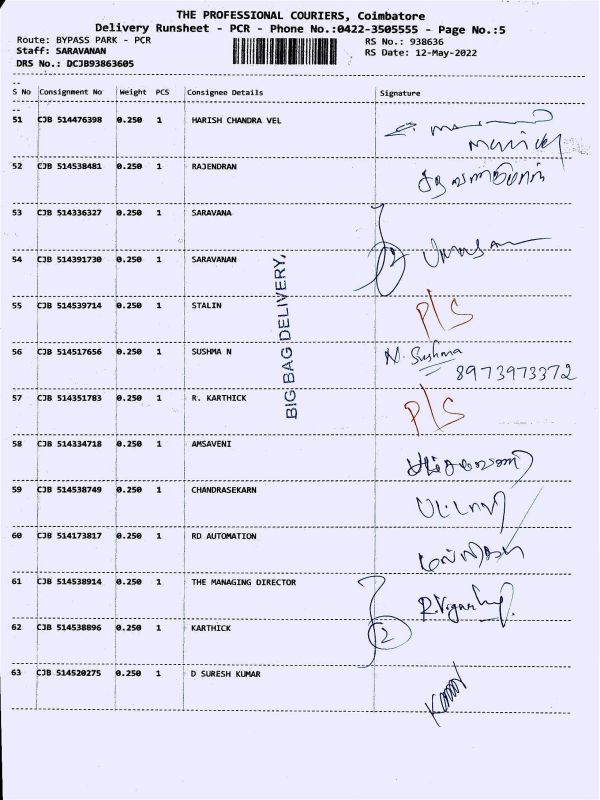 THE PROFESSIONAL COURIERS, Coimbatore
Delivery Runsheet - PCR - Phone No.:0422-3505555 - Page No.:5
Route: BYPASS PARK - PCR
RS No.: 938636
Staff: SARAVANAN
RS Date: 12-May-2022
DRS No.: DCJB93863605
S No Consignment No Weight PCS Consignee Details Signature
51 CJB 514476398 0.250 1 HARISH CHANDRA VEL
52 CJB 514538481 0.250 1 RAJENDRAN
53 CJB 514336327 0.250 1 SARAVANA
54 CJB 514391730 0.250 1 SARAVANAN 2
BIG BAG DELIVERY,
55 CJB 514539714 0.250 1 STALIN P/S
56 CJB 514517656 0.250 1 SUSHMA N N. Sushma
8973973372
57 CJB 514351783 0.250 1 R. KARTHICK P/S
58 CJB 514334718 0.250 1 AMSAVENI
59 CJB 514538749 0.250 1 CHANDRASEKARN
60 CJB 514173817 0.250 1 RD AUTOMATION
61 CJB 514538914 0.250 1 THE MANAGING DIRECTOR
62 CJB 514538896 0.250 1 KARTHICK 2
63 CJB 514520275 0.250 1 D SURESH KUMAR